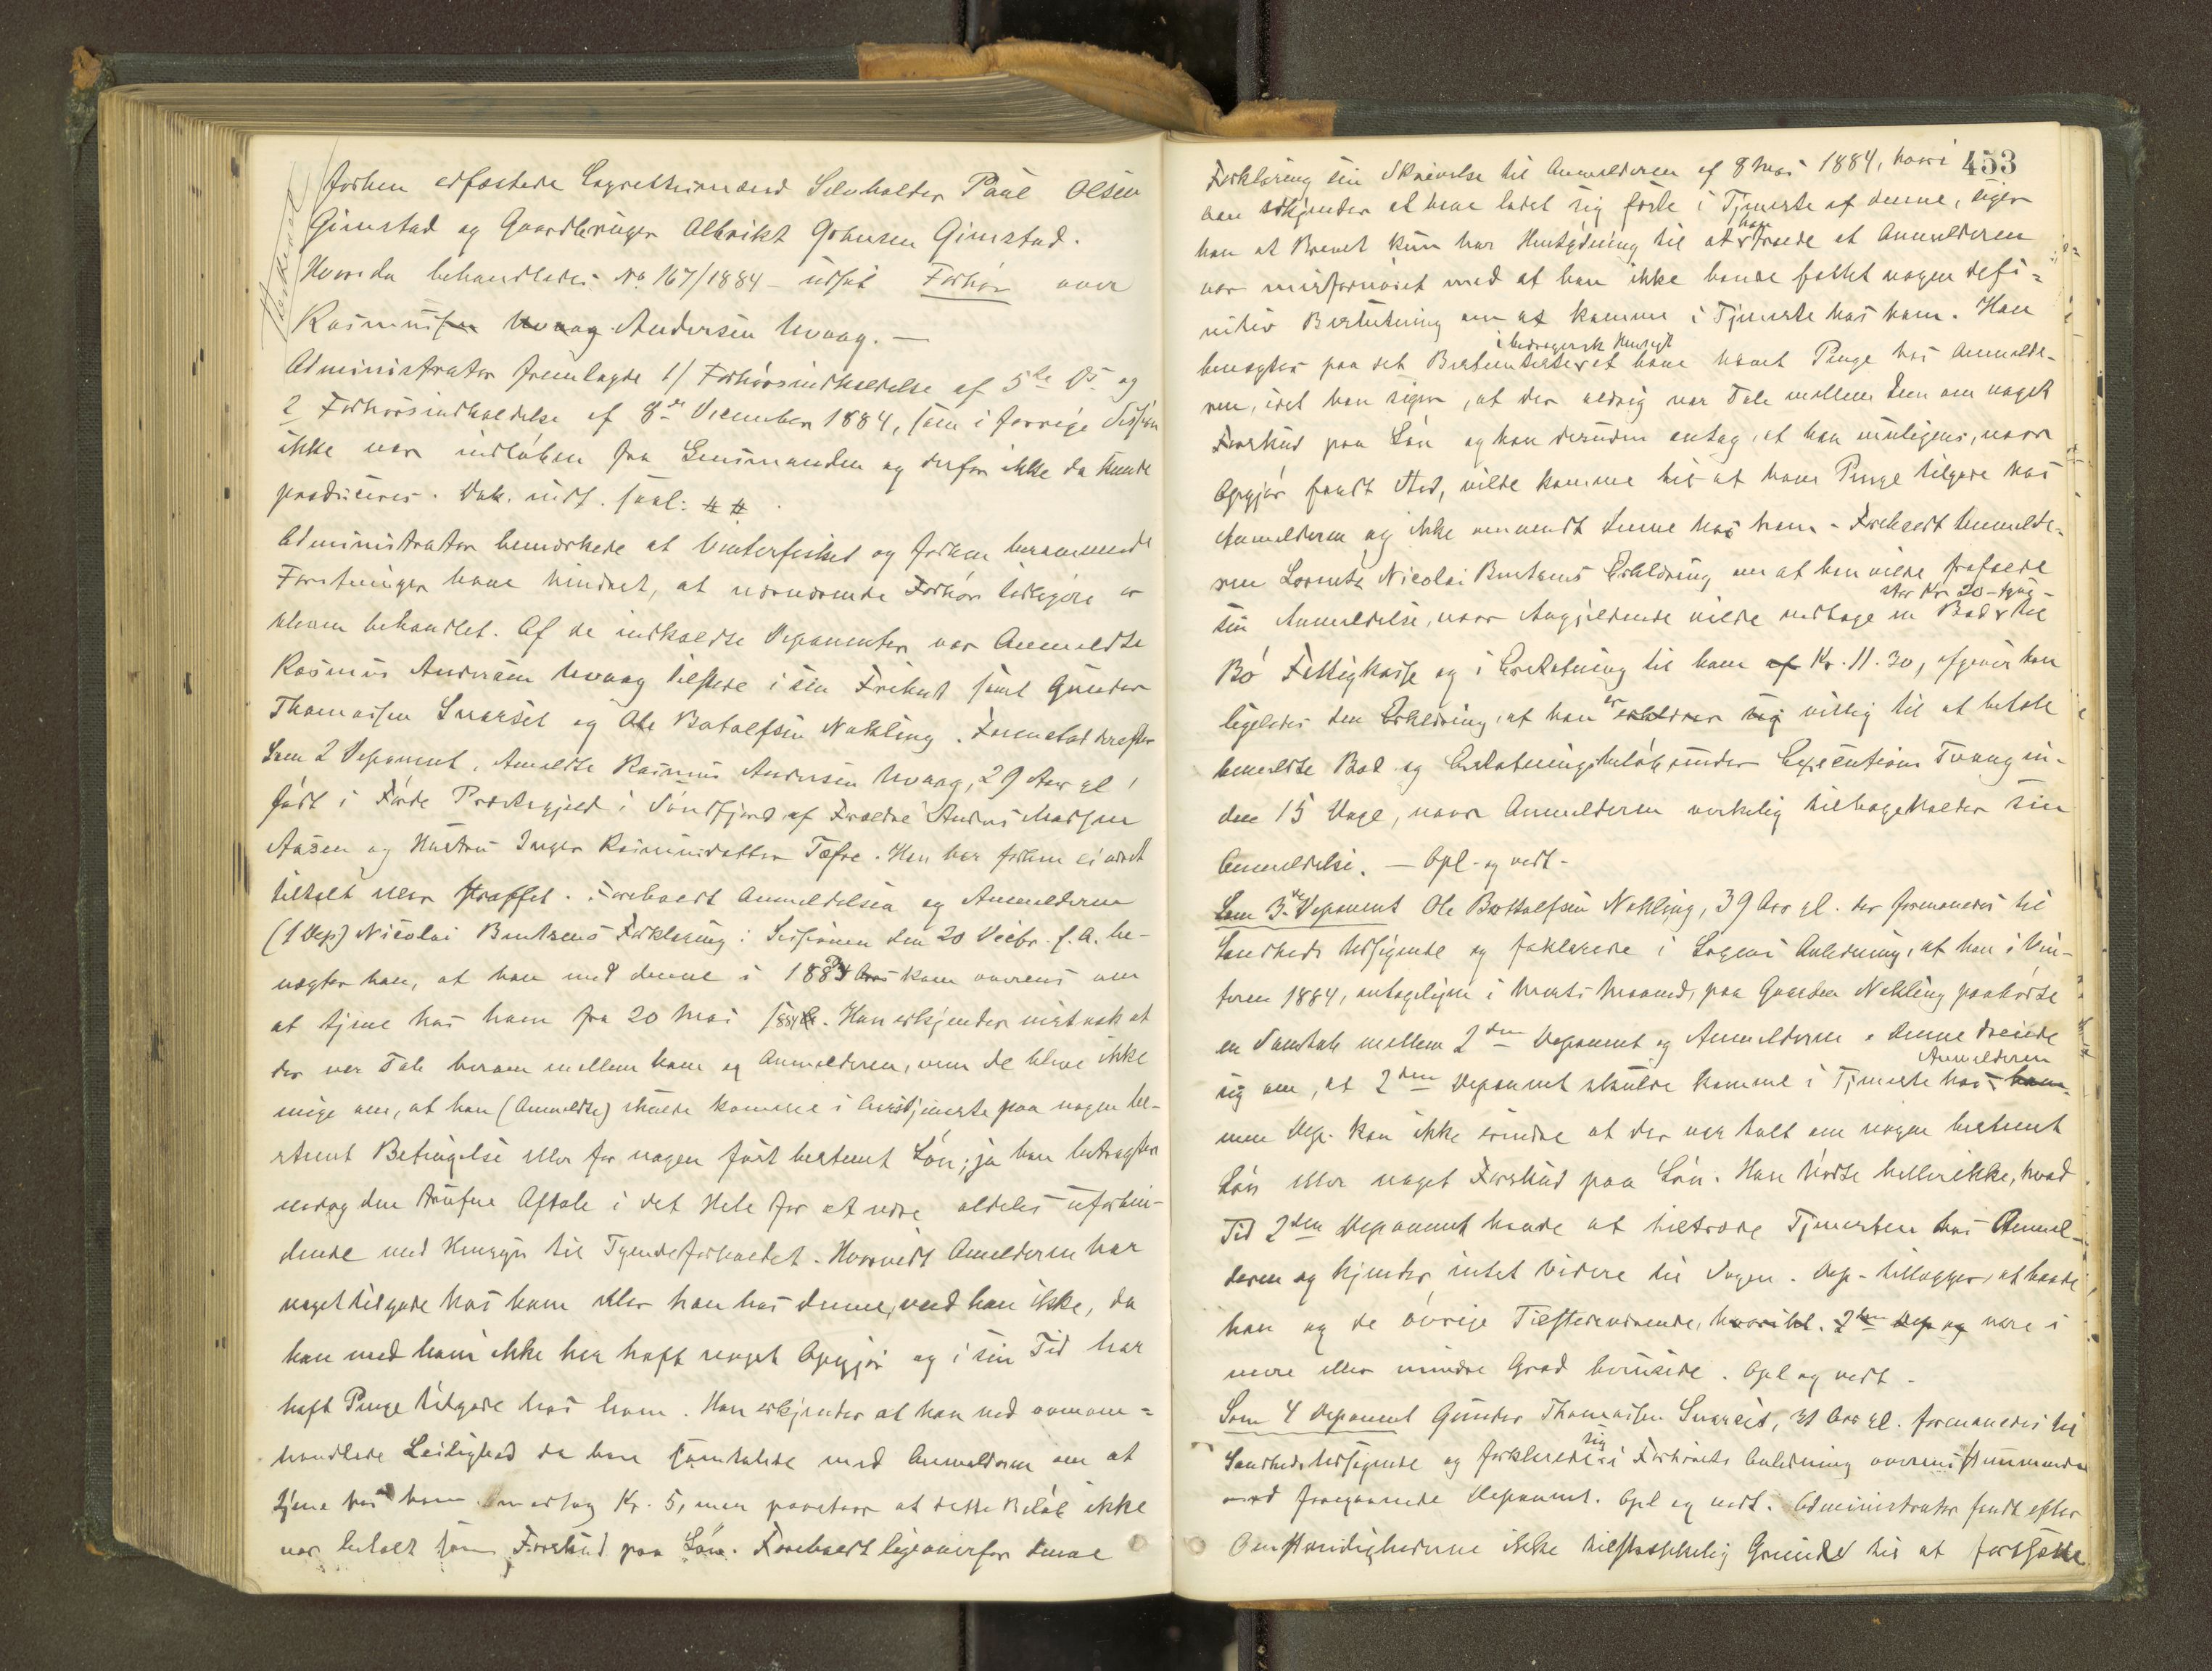 forhen edfæstede Lagrettismænd Selvholder Paul Olsen
Gimstad og Gaardbruger Albrikt Johnsen Gimstad.
Hvorda behandledes No 167/1884 - udsat Forhør over
Rasmus Andersen Uvaag. —
Administrator fremlagde 1/ Forhørsindkaldelse af 5te Ds. og
2 Forhørsindkaldelse af 8de December 1884, som i forrige Session
ikke var indløben fra Lensmanden og derfor ikke da kunde
produceres. Dok. indt. saal:
Administrator bemærkede at Vinterfisket og forhen berammede
Forretninger have hindret, at nærværende Forhør tidligere er
bleven behandlet. Af de indkaldte Deponenter var Anmeldte
Rasmus Andersen Uvaag tilstede i sin Frihed samt Gunder
Thomassen Snarset og Ole Botolfsen Nøkling. Fremstod derefter
Som 2 Deponent, Anmeldte Rasmus Andersen Uvaag, 29 Aar gl,
født i Førde Præstegjeld i Søndfjord af Forældre Anders Madsen
Aasen og Hustru Inger Rasmusdatter Tefre. Han har forhen ei været
tiltalt eller straffet. Foreholdt Anmeldelsen og Anmelderen
(1 Dep) Nicolai Bentzens Forklaring i Sessionen den 20 Decbr. f. A. be-
nægter han, at han med denne i 1883 kom overens om
at tjene hos ham fra 20 Mai 1884. Han erkjender vistnok at
der var Tale herom mellem ham og Anmelderen, men de bleve ikke
enige om, at han (Anmeldte) skulde komme i Aarstjeneste paa nogen be-
stemt Betingelse eller for nogen fast bestemt Løn; ja han betragter
endog den trufne Aftale i det Hele for at være aldeles uforbin-
dende med Hensyn til Tyendeforholdet. Hvorvidt Anmelderen har
noget tilgode hos ham eller han hos denne, ved han ikke, da
han med ham ikke har haft noget Opgjør og i sin Tid har
haft Penge tilgode hos ham. Han erkjender at han ved ovenom-
handlede Leilighed da han samtalede med Anmelderen om at
tjene hos ham modtog Kr. 5, men paastaar at dette Beløb ikke
var betalt som Forskud paa Løn. Foreholdt ligeoverfor denne
453
Forklaring sin Skrivelse til Anmelderen af 8 Mai 1884, hvori
han erkjender at have ladet sig fæste i Tjeneste af denne, siger
han at Brevet kun har Hentydning til at han troede at Anmelderen
var misfornøiet med at han ikke havde fattet nogen defi-
nitiv Beslutning om at komme i Tjeneste hos ham. Han
i bedragersk Hensigt
benægter paa det Bestemteste at have hævet Penge hos Anmelde-
ren, idet han siger, at der aldrig var Tale mellem dem om noget
Forskud paa Løn og han desuden antog, at han muligens, naar
Opgjør fandt Sted, vilde komme til at have Penge tilgode hos
Anmelderen og ikke omvendt denne hos ham. Foreholdt Anmelde-
ren Lorents Nicolai Bentzens Erklæring om at han vilde frafalde
stor Kr 20 - tyve -
sin Anmeldelse, naar Angjeldende vilde vedtage en Bod til
Bø Fattigkasse og i Erstatning til ham Kr. 11.30, afgiver han
ligeledes den Erklæring, at han er villig til at betale
bemeldte Bod og Erstatningsbeløb under Executions Tvang in-
den 15 Dage, naar Anmelderen virkelig tilbagekalder sin
Anmeldelse. — Opl. og vedt. -
Som 3die Deponent Ole Bottolfsen Nøkling, 39 Aar gl. der formanedes til
Sandheds Udsigende og forklarede i Sagens Anledning, at han i Vin-
teren 1884, antageligen i Marts Maaned, paa Gaarden Nøkling paahørte
en Samtale mellem 2den Deponent og Anmelderen. Denne dreiede
Anmelderen
sig om, at 2den Deponent skulde komme i Tjeneste hos ham
men Dep. kan ikke erindre at der var talt om nogen bestemt
Løn eller noget Forskud paa Løn. Han hørte heller ikke, hvad
Tid 2den Deponent havde at tiltræde Tjenesten hos Anmel-
deren og kjender intet videre til Sagen. Dep. tillægger, at baade
han og de øvrige Tilstedeværende, hvoriblt. 2den Dep og vare i
mere eller mindre Grad berusede. Opl og vedt -
Som 4 Deponent Gunder Thomassen Snarset, 31 Aar gl. formanedes til
Sandheds Udsigende og forklarede sig i Forhørets Anledning overensstemmende
med foregaaende Deponent. Opl og vedt. Administrator fandt efter
Omstændighederne ikke tilstrækkelig Grund til at fortsætte